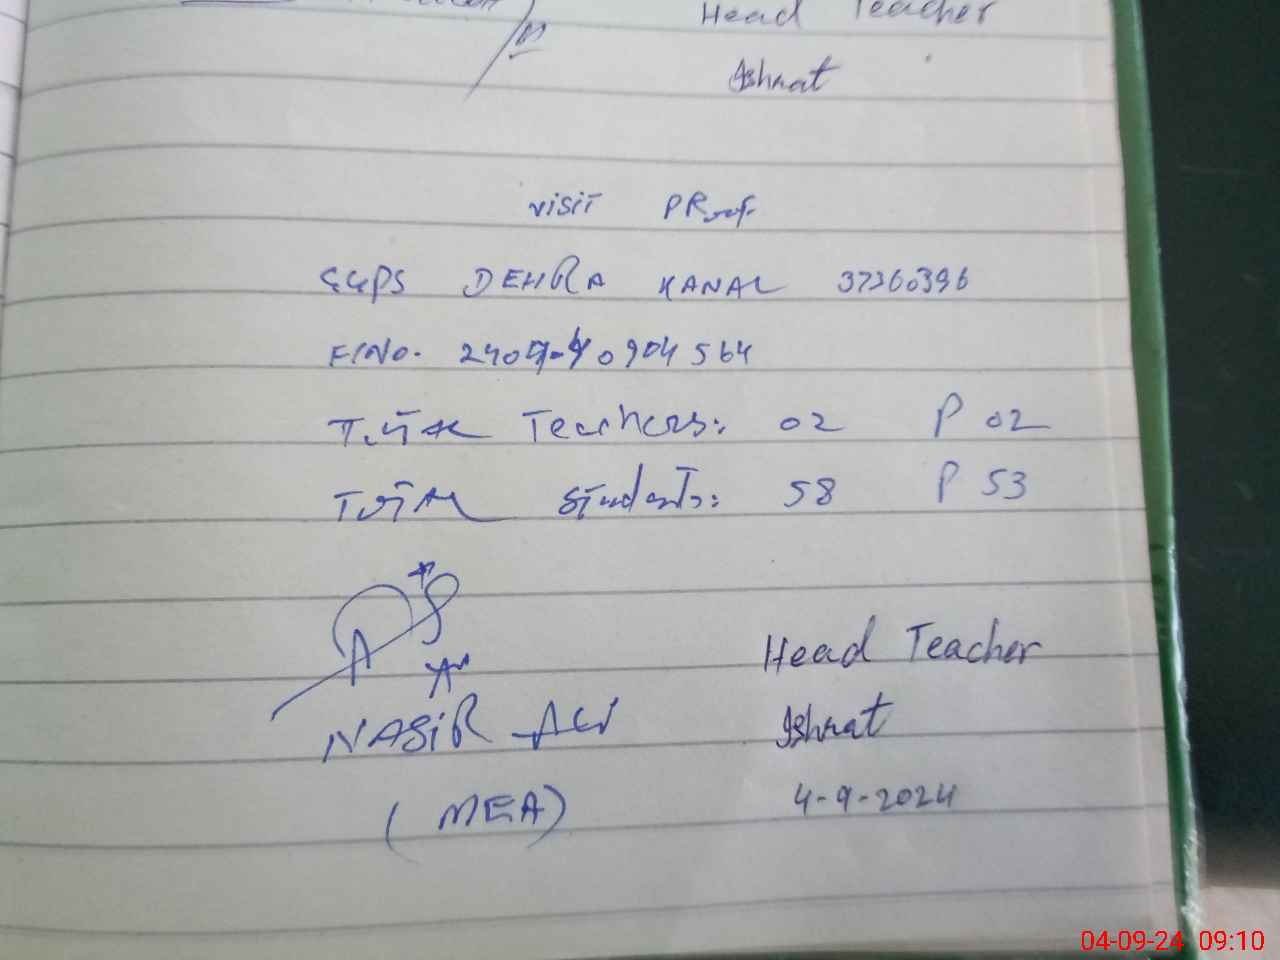 Head Teacher
Ishrat
visit PRoof
GGPS DEHRA KANAL 37260396
F/No. 2409-40904564
Total Teachers: 02 P 02
Total Students: 58 P 53
Head Teacher
NASiR Ali Ishrat
(MEA) 4-9-2024
04-09-24 09:10